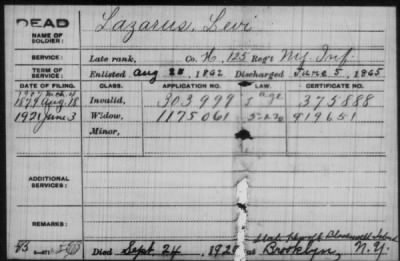 DEAD
NAME OF SOLDIER:
Lazarus, Levi
SERVICE:
Late rank, Co. H, 125 Reg't N.Y. Inf.
TERM OF SERVICE:
Enlisted Aug 28, 1862 Discharged June 5, 1865
DATE OF FILING. CLASS. APPLICATION NO. LAW. CERTIFICATE NO.
1907 Mch 4
1879 Aug. 18 Invalid, 303999 age 375888
1921 June 3 Widow, 1175061 919651
Minor,
ADDITIONAL SERVICES:
REMARKS:
Died Sept. 24, 1920 Brooklyn, N.Y.